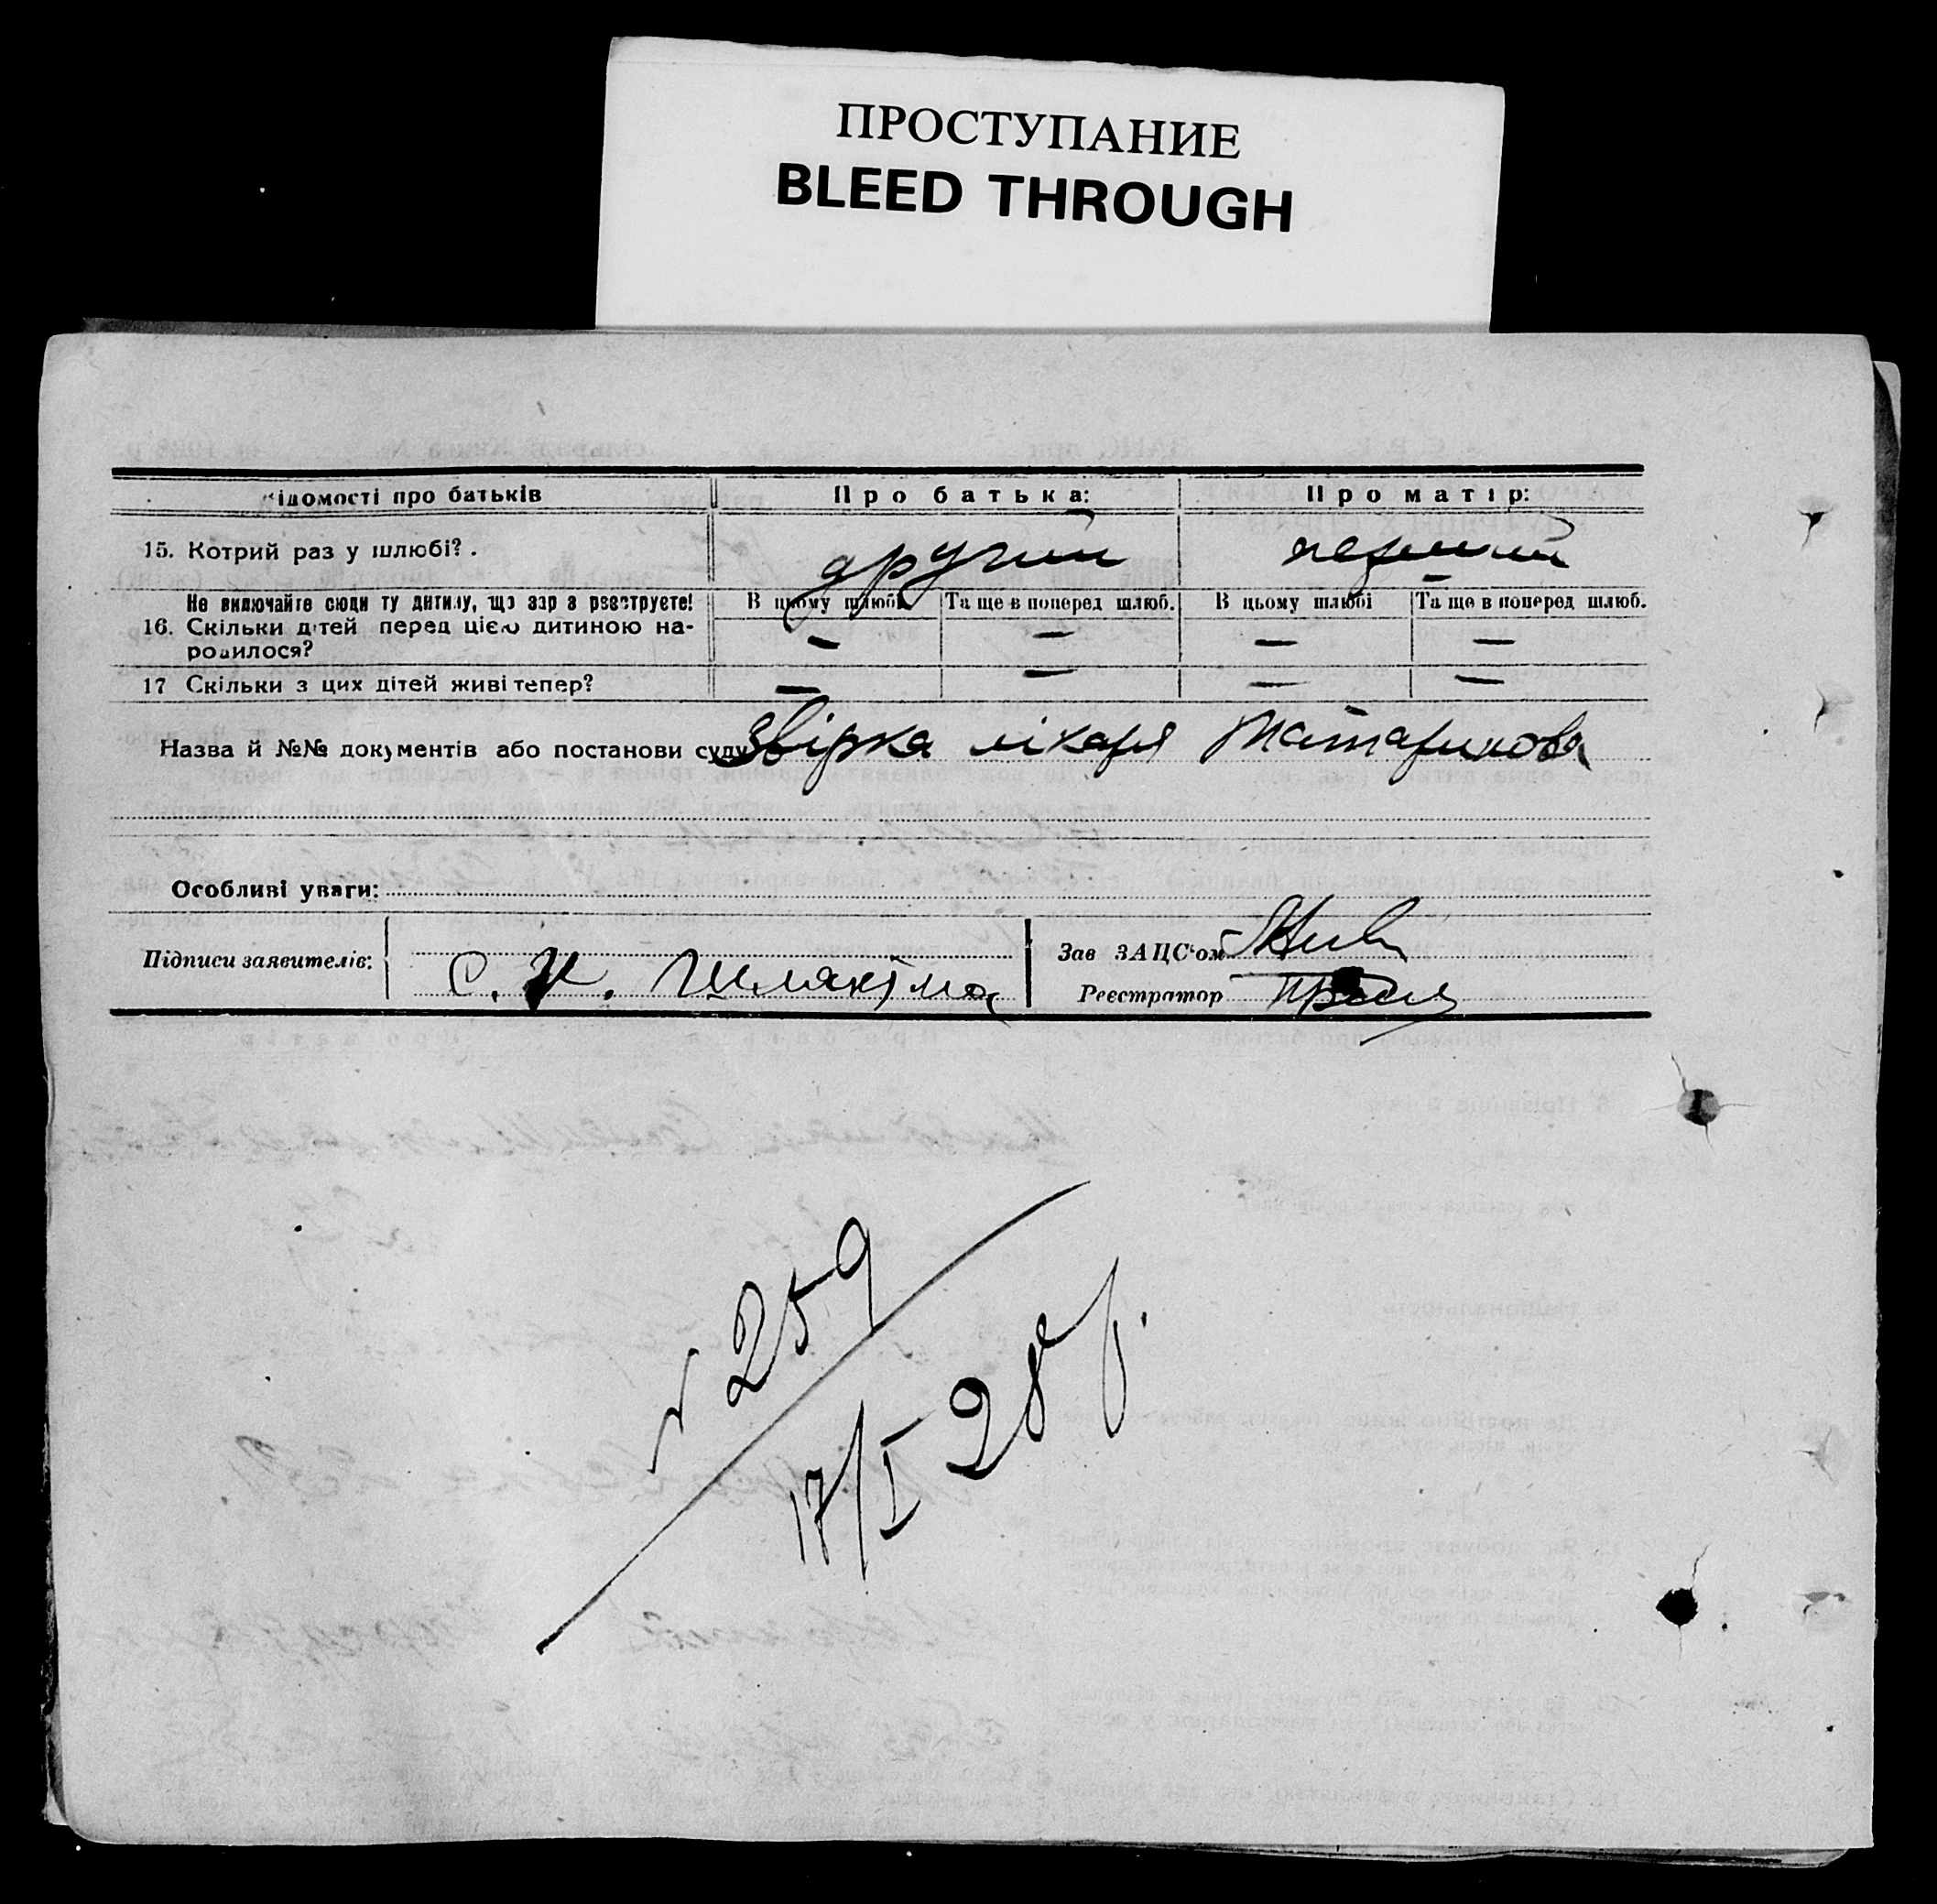 ПРОСТУПАНИЕ
BLEED THROUGH
ідомості про батьків Про батька: Про матір:
15. Котрий раз у шлюбі? . другий перший
Не включайте сюди ту дитину, що зараз реєструєте! В цьому шлюбі Та ще в поперед шлюб. В цьому шлюбі Та ще в поперед шлюб.
16. Скільки дітей перед цією дитиною на-
родилося? — — — —
17 Скільки з цих дітей живі тепер? — — — —
Назва й №№ документів або постанови суду Звірка лікаря Татаринова
Особливі уваги:
Підписи заявителів: Зав ЗАЦС'ом
С. Реєстратор
№ 259
17/I 28 р.